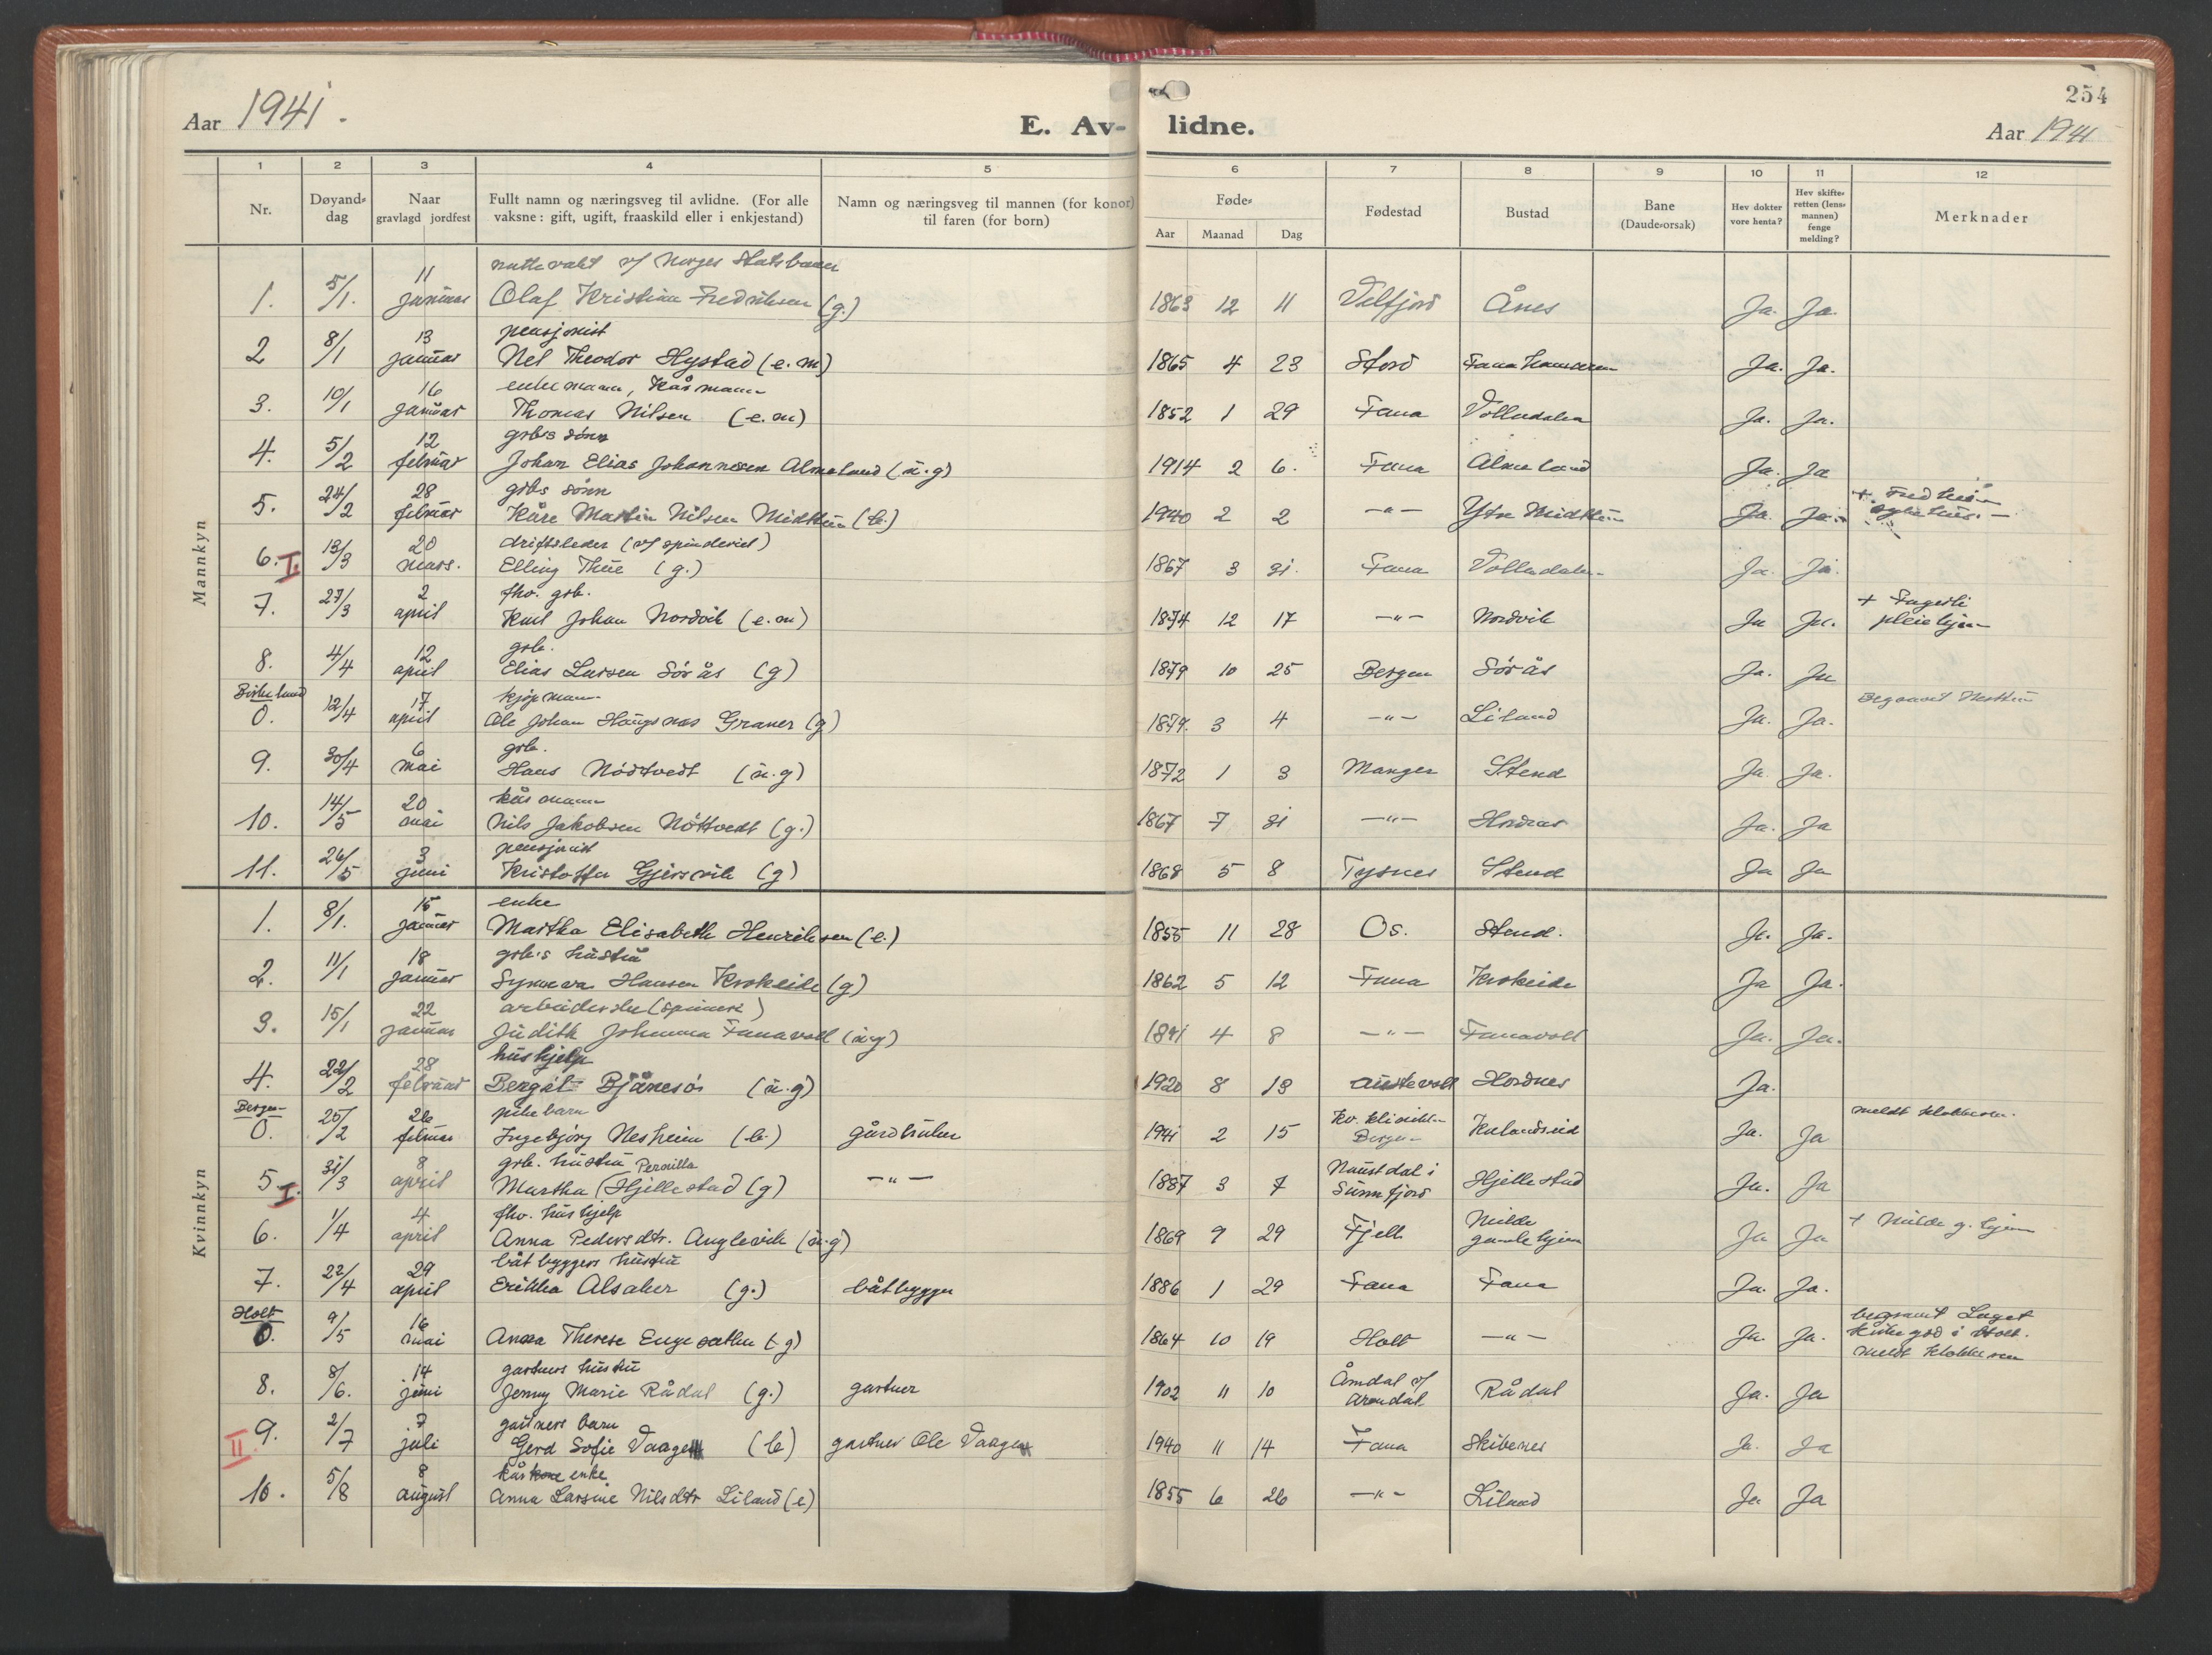 254
Aar 1941.
E. Av- lidne.
Aar 1941
1 2 3 4 5 6 7 8 9 10 11 12
Nr.
Døyand-
dag
Naar
gravlagd jordfest
Fullt namn og næringsveg til avlidne. (For alle
vaksne: gift, ugift, fraaskild eller i enkjestand)
Namn og næringsveg til mannen (for konor)
til faren (for born)
Føde-
Aar Maanad Dag
Fødestad
Bustad
Bane
(Daude-orsak)
Hev dokter
vore henta?
Hev skifte-
retten (lens-
mannen)
fenge
melding?
Merknader
Mannkyn
11 nattevakt v/ Norges Statsbaner
1. 5/1. januar Olaf Kristian Fredriksen (g.) 1863 12 11 Velfjord Ånes Ja. Ja.
13 pensjonist
2 8/1 januar Nel Theodor Hystad (e.m) 1865 4 23 Stord Fana Ja. Ja.
16 enkemann, kårmann
3. 10/1 januar Thomas Nilsen (e.m) 1852 1 29 Fana Volludalen Ja. Ja.
12 grb's sönn
4. 5/2 februar Johan Elias Johannesen Almeland (ü.g) 1914 2 6. Fana Almeland Ja. Ja
28 grb's sönn
5. 24/2 februar Kåre Martin Nilsen Midttün (b.) 1940 2 2 —"— Ytre Midttün Ja. Ja.
20 driftsleder (v/ spinderiet)
6. I. 13/3 mars. Elling Thüe (g.) 1867 3 31. Fana Volludalen Ja. Ja.
2 fhv. grb. + Fagerli
7. 27/3 april Karl Johan Nordvik (e.m) 1874 12 17 —"— Nordvik Ja Ja. pleiehjem
12 grb.
8. 4/4 april Elias Larsen Sörås (g) 1879 10 25 Bergen Sörås Ja. Ja
Birkeland 17 kjøpmann Begravet Nesttün
0. 12/4 april Ole Johan Haugsnæs Graner (g) 1879. 3 4 —"— Liland Ja. Ja.
6 grb.
9. 30/4 mai Hans Nödtvedt (ü.g) 1872 1 3 Manger Stend Ja. Ja.
20 kårmann
10. 14/5 mai Nils Jakobsen Nöttvedt (g.) 1867 7 31 —"— Hordnes Ja. Ja
3 pensjonist
11. 26/5 juni Kristoffer Gjersvik (g) 1868 5 8 Tysnes Stend Ja Ja
Kvinnkyn
15 enke
1. 8/1. januar Martha Elisabeth Henriksen (e.) 1855 11 28 Os. Stend. Ja. Ja.
18 grb's hüstrü
2. 11/1 januar Synneva Hansen Krokeide (g) 1862 5 12 Fana Krokeide Ja Ja.
22 arbeiderske (spinneri)
3. 15/1 januar Judith Johanna Fanavoll (ü.g) 1891 4 8 —"— Fanavoll Ja. Ja.
28 hüshjelp
4. 22/2 februar Bergit Bjånesöi (ü.g) 1920 8 13 Austevoll Hordnes Ja.
Bergen 26 pikebarn Kv. klinikken meldt klokkeren.
0. 25/2 februar Ingebjörg Nesheim (b.) gårdbrüker 1941 2 15 Bergen Kalandseid Ja. Ja
8 grb. hüstrü Pernilla Naustdal i
5 I. 31/3 april Martha (Hjellestad (g) —"— 1887 3 7 Sunnfjord Hjellestad Ja. Ja
4 fhv. hüshjelp Milde + Milde g. hjem
6. 1/4 april Anna Pedersdtr. Anglevik (ü.g) 1869 9 29 Fjell gamlehjem Ja Ja
29 båtbyggers hüstrü
7. 22/4 april Erikka Alsaker (g.) båtbygger 1886 1 29 Fana Fana Ja. Ja.
Holt 16 begravet Laget
0. 9/5 mai Anna Therese Engesæther (g) 1864 10 19 Holt —"— Ja. Ja. kirkegård i Holt.
meldt klokkeren
14 gartners hüstrü Åmdal v/
8. 8/6. juni Jenny Marie Rådal (g.) gartner 1902 11 10 Arendal Rådal Ja. Ja
7 gartners barn
II 9. 2/7 juli Gerd Sofie Vaage (b) gartner Ole Vaage 1940 11 14 Fana Skibenes Ja. Ja
8 kårkone enke
10. 5/8 august Anna Larsine Nilsdtr Liland (e) 1855 6 26 —"— Liland Ja Ja